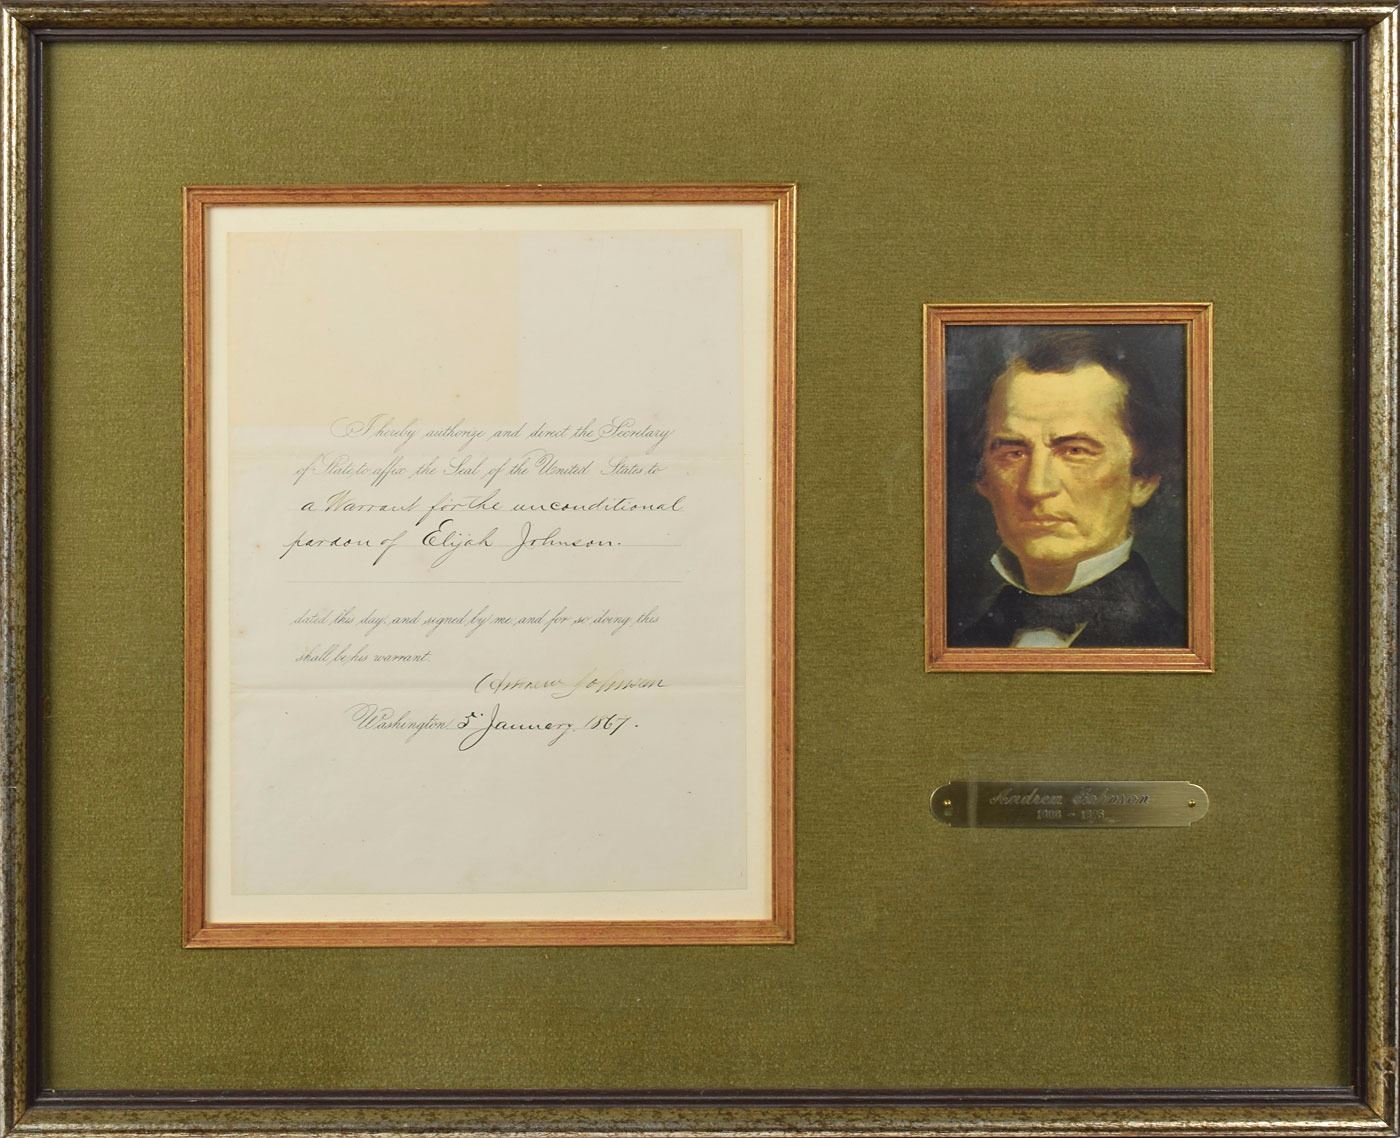 I hereby authorize and direct the Secretary
of State to affix the Seal of the United States to
a Warrant for the unconditional
pardon of Elijah Johnson.
dated this day, and signed by me, and for so doing this
shall be his warrant.
Andrew Johnson
Washington, 5. January, 1867.
Andrew Johnson